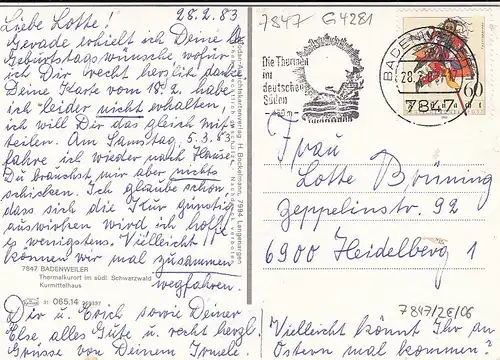 28.2.83
Liebe Lotte!
Gerade erhielt ich Deine lb.
Geburtstagswünsche wofür
ich Dir recht herzlich danke.
Deine Karte vom 18.2. habe
ich leider nicht erhalten,
ich will Dir das gleich mit-
teilen. Am Samstag, 5.3.83
fahre ich wieder nach Hause.
Du brauchst mir aber nichts
schicken. Ich glaube schon,
dass sich die Kur günstig
auswirken wird ich hoffe
es wenigstens. Vielleicht
können wir mal zusammen
wegfahren.
7847 BADENWEILER
Thermalkurort im südl. Schwarzwald
Kurmittelhaus
31 065.14
Dir u. Erich sowie Deiner
Else alles Gute u. recht herzl.
Grüsse von Deinem
Ansichtskartenverlag H. Bockelmann, 7994 Langenargen
7847 G4281
Die Thermen
im
deutschen
Süden
BADENWEILER
28.2.
7847
60
Frau
Lotte Brüning
Zeppelinstr. 92
6900 Heidelberg 1
7847/2E/06
Vielleicht könnt Ihr an
Ostern mal kommen?